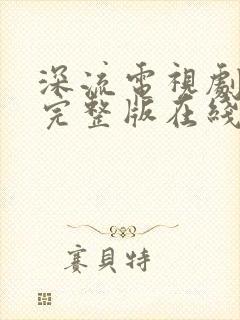 深流電視劇
完整版在綫
賽貝特